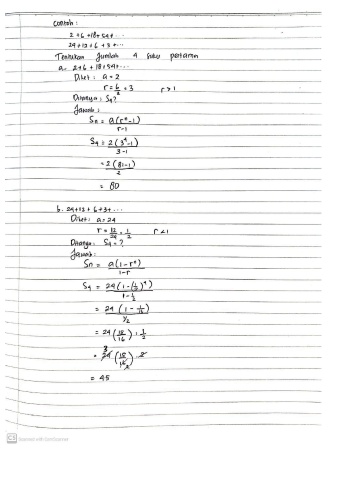 Contoh :
2 + 6 + 18 + 54 + ...
24 + 12 + 6 + 3 + ...
Tentukan Jumlah 4 suku pertama
a. 2 + 6 + 18 + 54 + ...
Diket : a = 2
r = 6/2 = 3 r > 1
Ditanya : S4 ?
Jawab :
Sn = a(rⁿ - 1) / r - 1
S4 = 2(3⁴ - 1) / 3 - 1
= 2(81 - 1) / 2
= 80
b. 24 + 12 + 6 + 3 + ...
Diket : a = 24
r = 12/24 = 1/2 r < 1
Ditanya : S4 = ?
Jawab :
Sn = a(1 - rⁿ) / 1 - r
S4 = 24(1 - (1/2)⁴) / 1 - 1/2
= 24(1 - 1/16) / 1/2
= 24(15/16) : 1/2
= 24 3 (15/16 2) . 2
= 45
CS Scanned with CamScanner